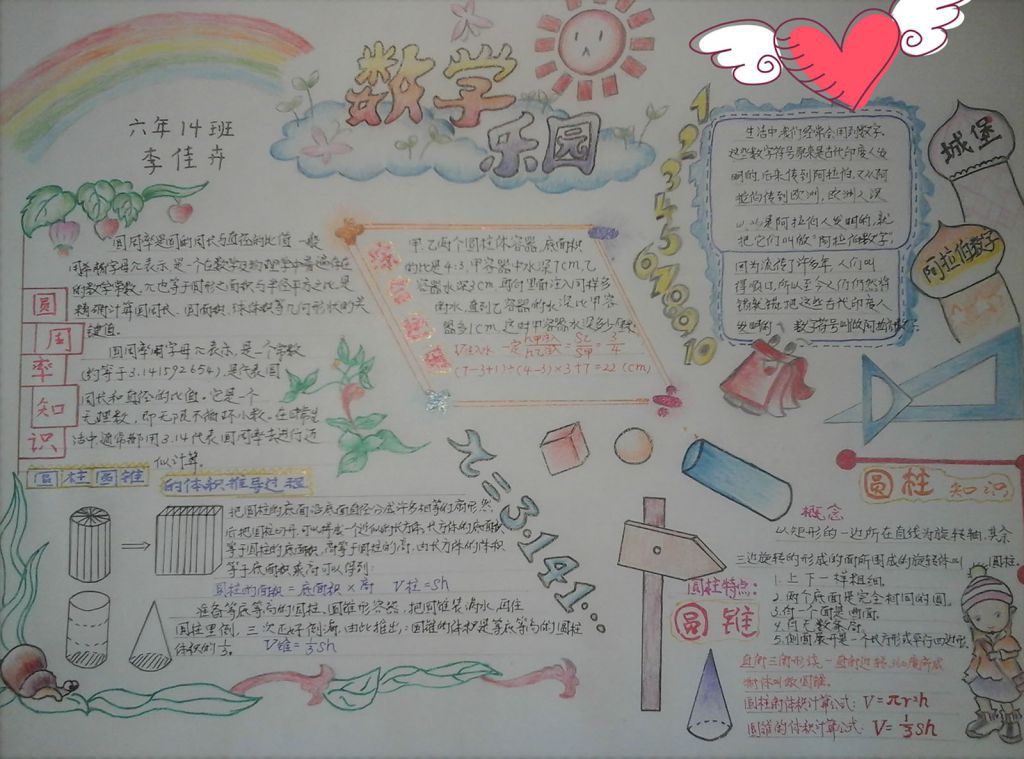 数学
乐园
六年14班
李佳卉
1 2 3 4 5 6 7 8 9 10
生活中我们经常会用到数字
这些数字符号原来是古代印度人发
明的,后来传到阿拉伯,又从阿
拉伯传到欧洲,欧洲人误
以为是阿拉伯人发明的,就
把它们叫做“阿拉伯数字”
因为流传了许多年,人们叫
得顺口,所以至今人们仍然将
错就错,把这些古代印度人
发明的 数字符号叫做阿拉伯数字
城堡
阿拉伯数字
圆周率知识
圆周率是圆的周长与直径的比值,一般
用希腊字母π表示,是一个在数学及物理学中普遍存在
的数学常数,π也等于圆形之面积与半径平方之比,是
精确计算圆周长、圆面积、球体积等几何形状的关
键值。
圆周率用字母π表示,是一个常数
(约等于3.141592654),是代表圆
周长和直径的比值。它是一个
无理数,即无限不循环小数。在日常生
活中,通常都用3.14代表圆周率去进行近
似计算。
甲、乙两个圆柱体容器,底面积
的比是4:3,甲容器中水深7cm,乙
容器水深3cm,再往里面注入同样多
的水,直到乙容器的水深比甲容
器多1cm,这时甲容器水深多少厘米
V注水一定 h甲注入/h乙注入=S乙/S甲=3/4
(7-3+1)÷(4-3)×3+7=22(cm)
π=3.141...
圆柱圆锥 的体积推导过程
把圆柱的底面沿底面直径分成许多相等的扇形,然
后把圆柱切开,可以拼成一个近似的长方体,长方体的底面积
等于圆柱的底面积,高等于圆柱的高,由长方体的体积
等于底面积乘高可以得到:
圆柱的面积=底面积×高 V柱=Sh
准备等底等高的圆柱、圆锥形容器,把圆锥装满水,再往
圆柱里倒,三次正好倒满,由此推出:圆锥的体积是等底等高的圆柱
体积的1/3。 V锥=1/3Sh
圆柱知识
概念
以矩形的一边所在直线为旋转轴,其余
三边旋转的形成的面所围成的旋转体叫 圆柱。
圆柱特点:
1.上下一样粗细。
2.两个底面是完全相同的圆。
3.有一个面是曲面。
4.有无数条高。
5.侧面展开是一个长方形或平行四边形
圆锥
直角三角形绕一直角边转360度所成
圆柱的体积计算公式:V=πr²h
圆锥的体积计算公式:V=1/3Sh